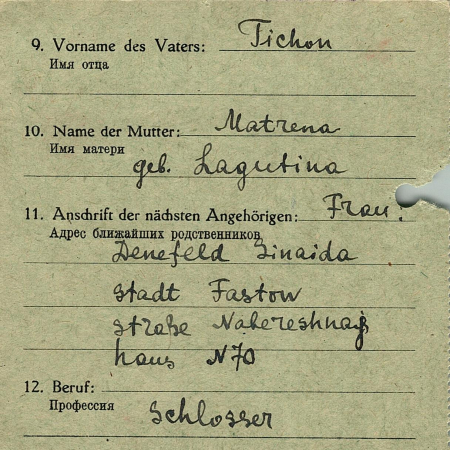 9. Vorname des Vaters: Tichon
Имя отца
10. Name der Mutter: Matrena
Имя матери
geb. Lagutina
11. Anschrift der nächsten Angehörigen: Frau.
Адрес ближайших родственников
Denefeld Sinaida
Stadt Fastow
Straße Nabereshnaja
haus N70
12. Beruf:
Профессия
Schlosser